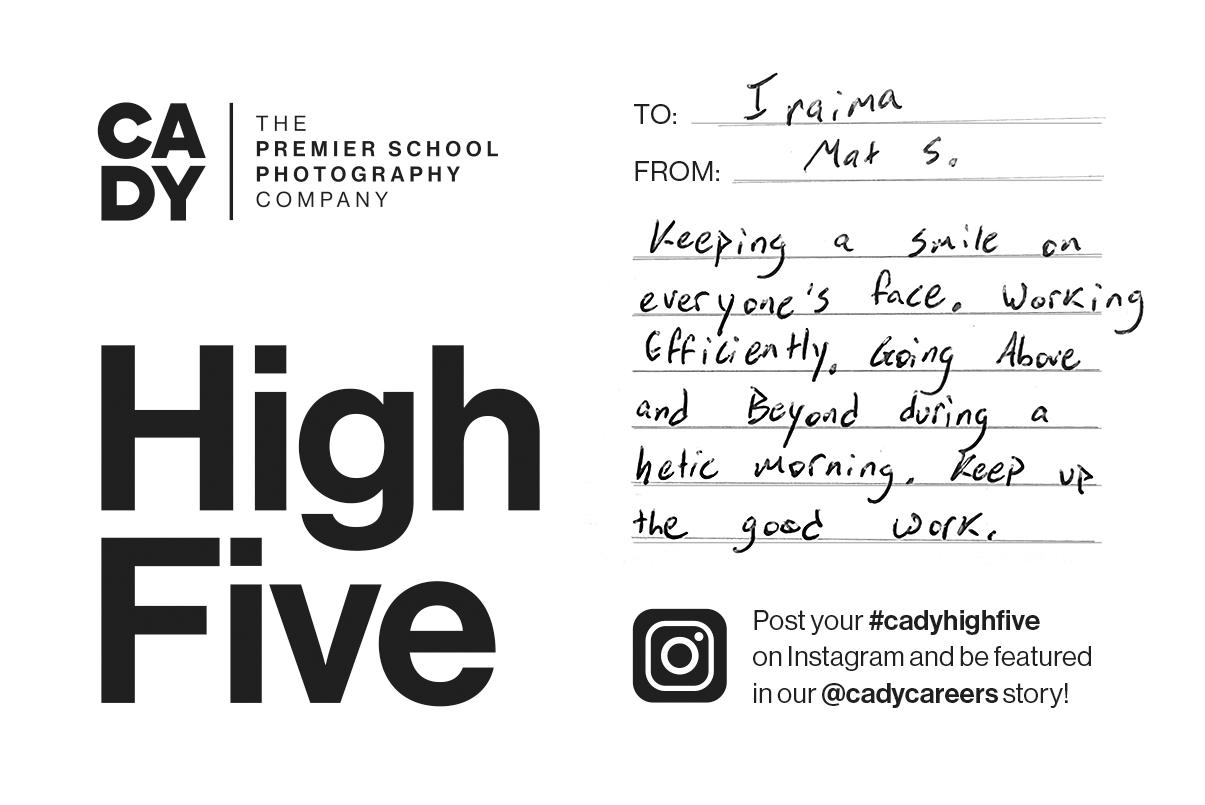 CA
DY
THE
PREMIER SCHOOL
PHOTOGRAPHY
COMPANY
High
Five
TO: Iraima
FROM: Mat S.
Keeping a smile on
everyone's face. Working
Efficiently. Going Above
and Beyond during a
hetic morning. Keep up
the good work.
Post your #cadyhighfive
on Instagram and be featured
in our @cadycareers story!